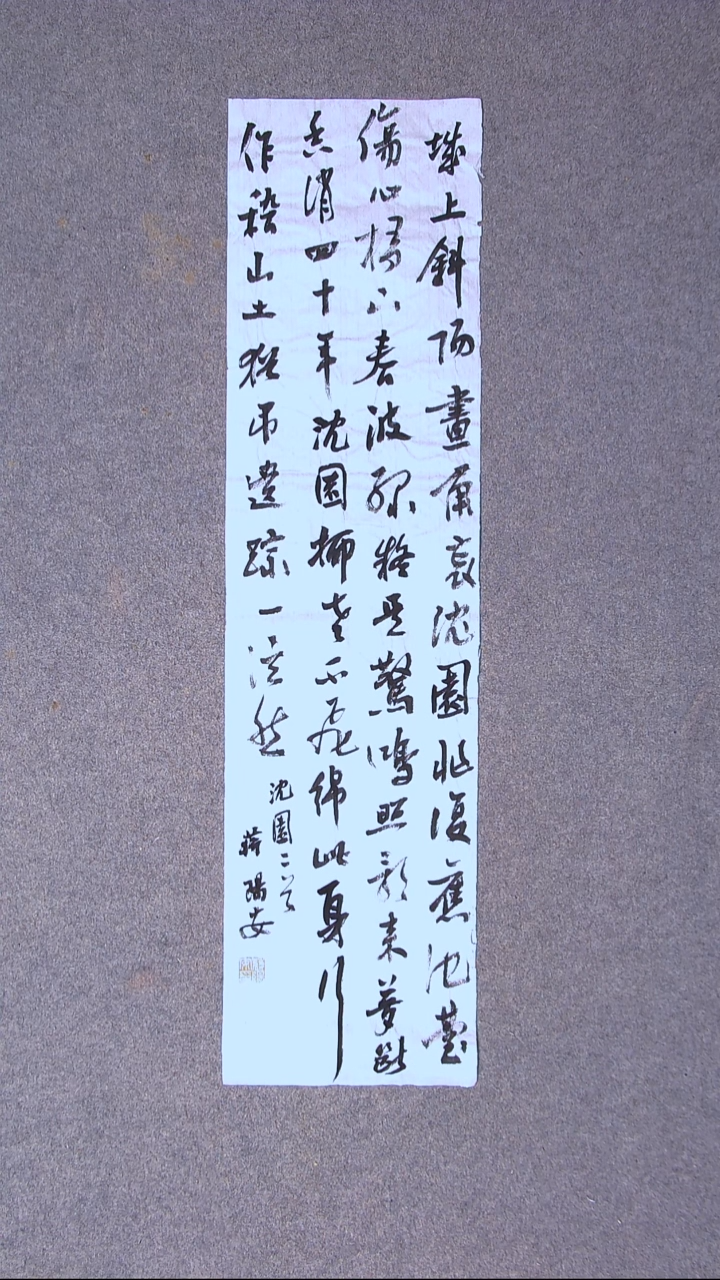 城上斜阳畫角哀沈園非復舊池臺
傷心橋下春波綠疑是驚鴻照影來夢斷
香消四十年沈園柳老不飛綿此身行
作稽山土猶吊遺踪一泫然
沈園二首
蔣陽安